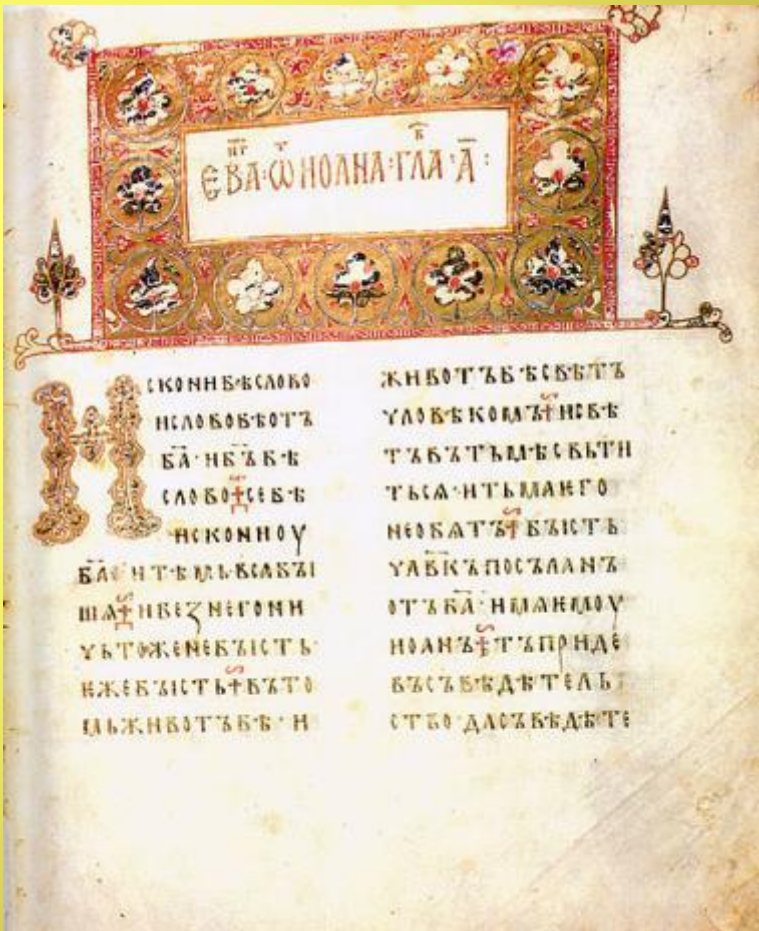 ЕВА·Ѿ ИОАНА·ГЛА·А҃:
ИСКОНИБѢСЛОВО
ИСЛОВОБѢОТЪ
Б҃А·ИБ҃ЪБѢ
СЛОВОСЕБѢ
ИСКОНИОУ
Б҃А ИТѢМЬВСѦБꙐ
ШѦИБЕЗНЕГОНИ
ЧЬТОЖЕНЕБꙐСТЬ·
ЕЖЕБꙐСТЬВЪТО
МЬЖИВОТЪБѢ·И
ЖИВОТЪБѢСВѢТЪ
ЧЛОВѢКОМЪИСВѢ
ТЪВЪТЬМѢСВЬТИ
ТЬСѦ·ИТЬМАѤГО
НЕОБѦТЪБꙐСТЬ
ЧЛ҃ВКЪПОСЪЛАНЪ
ОТЪБ҃А·ИМѦѤМОУ
ИОАНЪТЪПРИДЕ
ВЪСЪВѢДѢТЕЛЬ
СТВО·ДАСЪВѢДѢТЕ